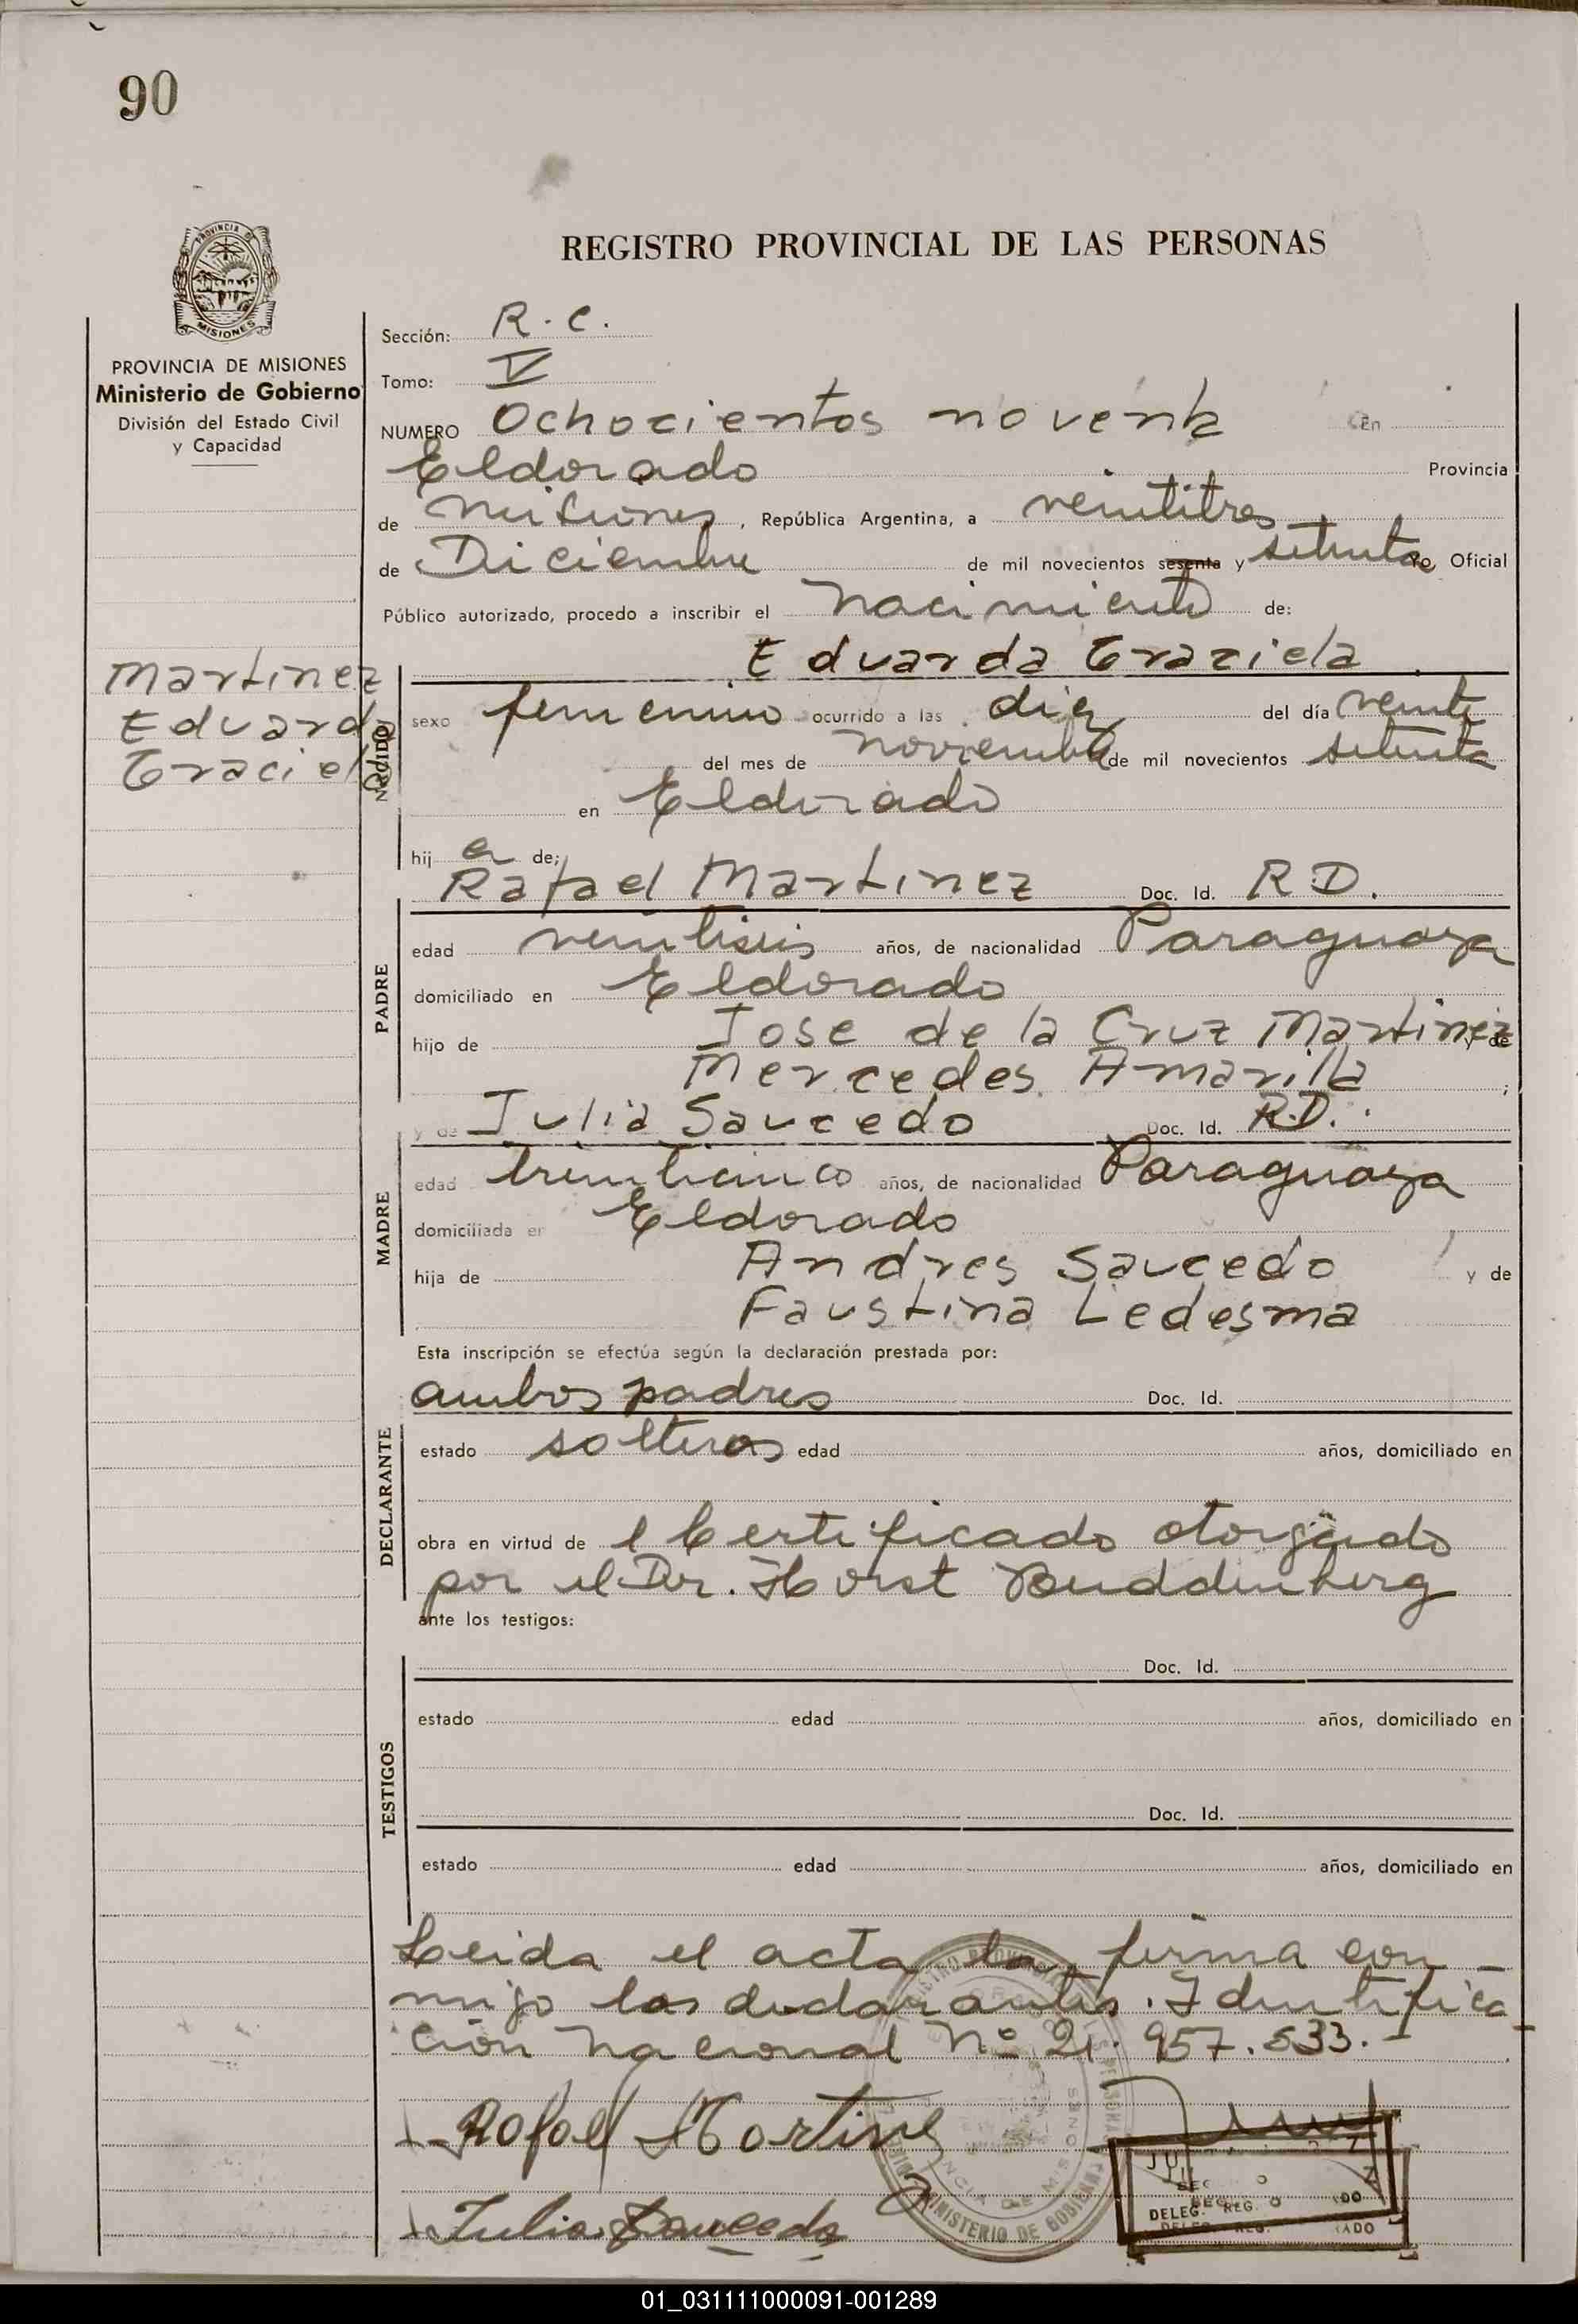 90
PROVINCIA DE
MISIONES
PROVINCIA DE MISIONES
Ministerio de Gobierno
División del Estado Civil
y Capacidad
Martinez
Eduarda
Graciela
REGISTRO PROVINCIAL DE LAS PERSONAS
Sección: R. C.
Tomo: V
NUMERO Ochocientos noventa En
Eldorado Provincia
de Misiones, República Argentina, a veintitres
de Diciembre de mil novecientos sesenta y setenta Yo, Oficial
Público autorizado, procedo a inscribir el Nacimiento de:
Eduarda Graciela
NACIDO
sexo femenino ocurrido a las diez del día veinte
del mes de noviembre de mil novecientos setenta
en Eldorado
hij a de:
Rafael Martinez Doc. Id. R.D.
PADRE
edad veintiseis años, de nacionalidad Paraguaya
domiciliado en Eldorado
hijo de Jose de la Cruz Martinez y de
Mercedes Amarilla ;
y de Julia Saucedo Doc. Id. R.D.
MADRE
edad treinticinco años, de nacionalidad Paraguaya
domiciliada en Eldorado
hija de Andres Saucedo y de
Faustina Ledesma
Esta inscripción se efectúa según la declaración prestada por:
ambos padres Doc. Id.
DECLARANTE
estado solteros edad años, domiciliado en
obra en virtud de l Certificado otorgado
por el Dr. Horst Buddenberg
ante los testigos:
Doc. Id.
TESTIGOS
estado edad años, domiciliado en
Doc. Id.
estado edad años, domiciliado en
Leida el acta la firma con
migo los declarantes. Identifica
ción Nacional Nº 21.957.533.-
Rafael Martinez
Julia Saucedo
MINISTERIO DE GOBIERNO
DELEG. REG.
01_031111000091-001289